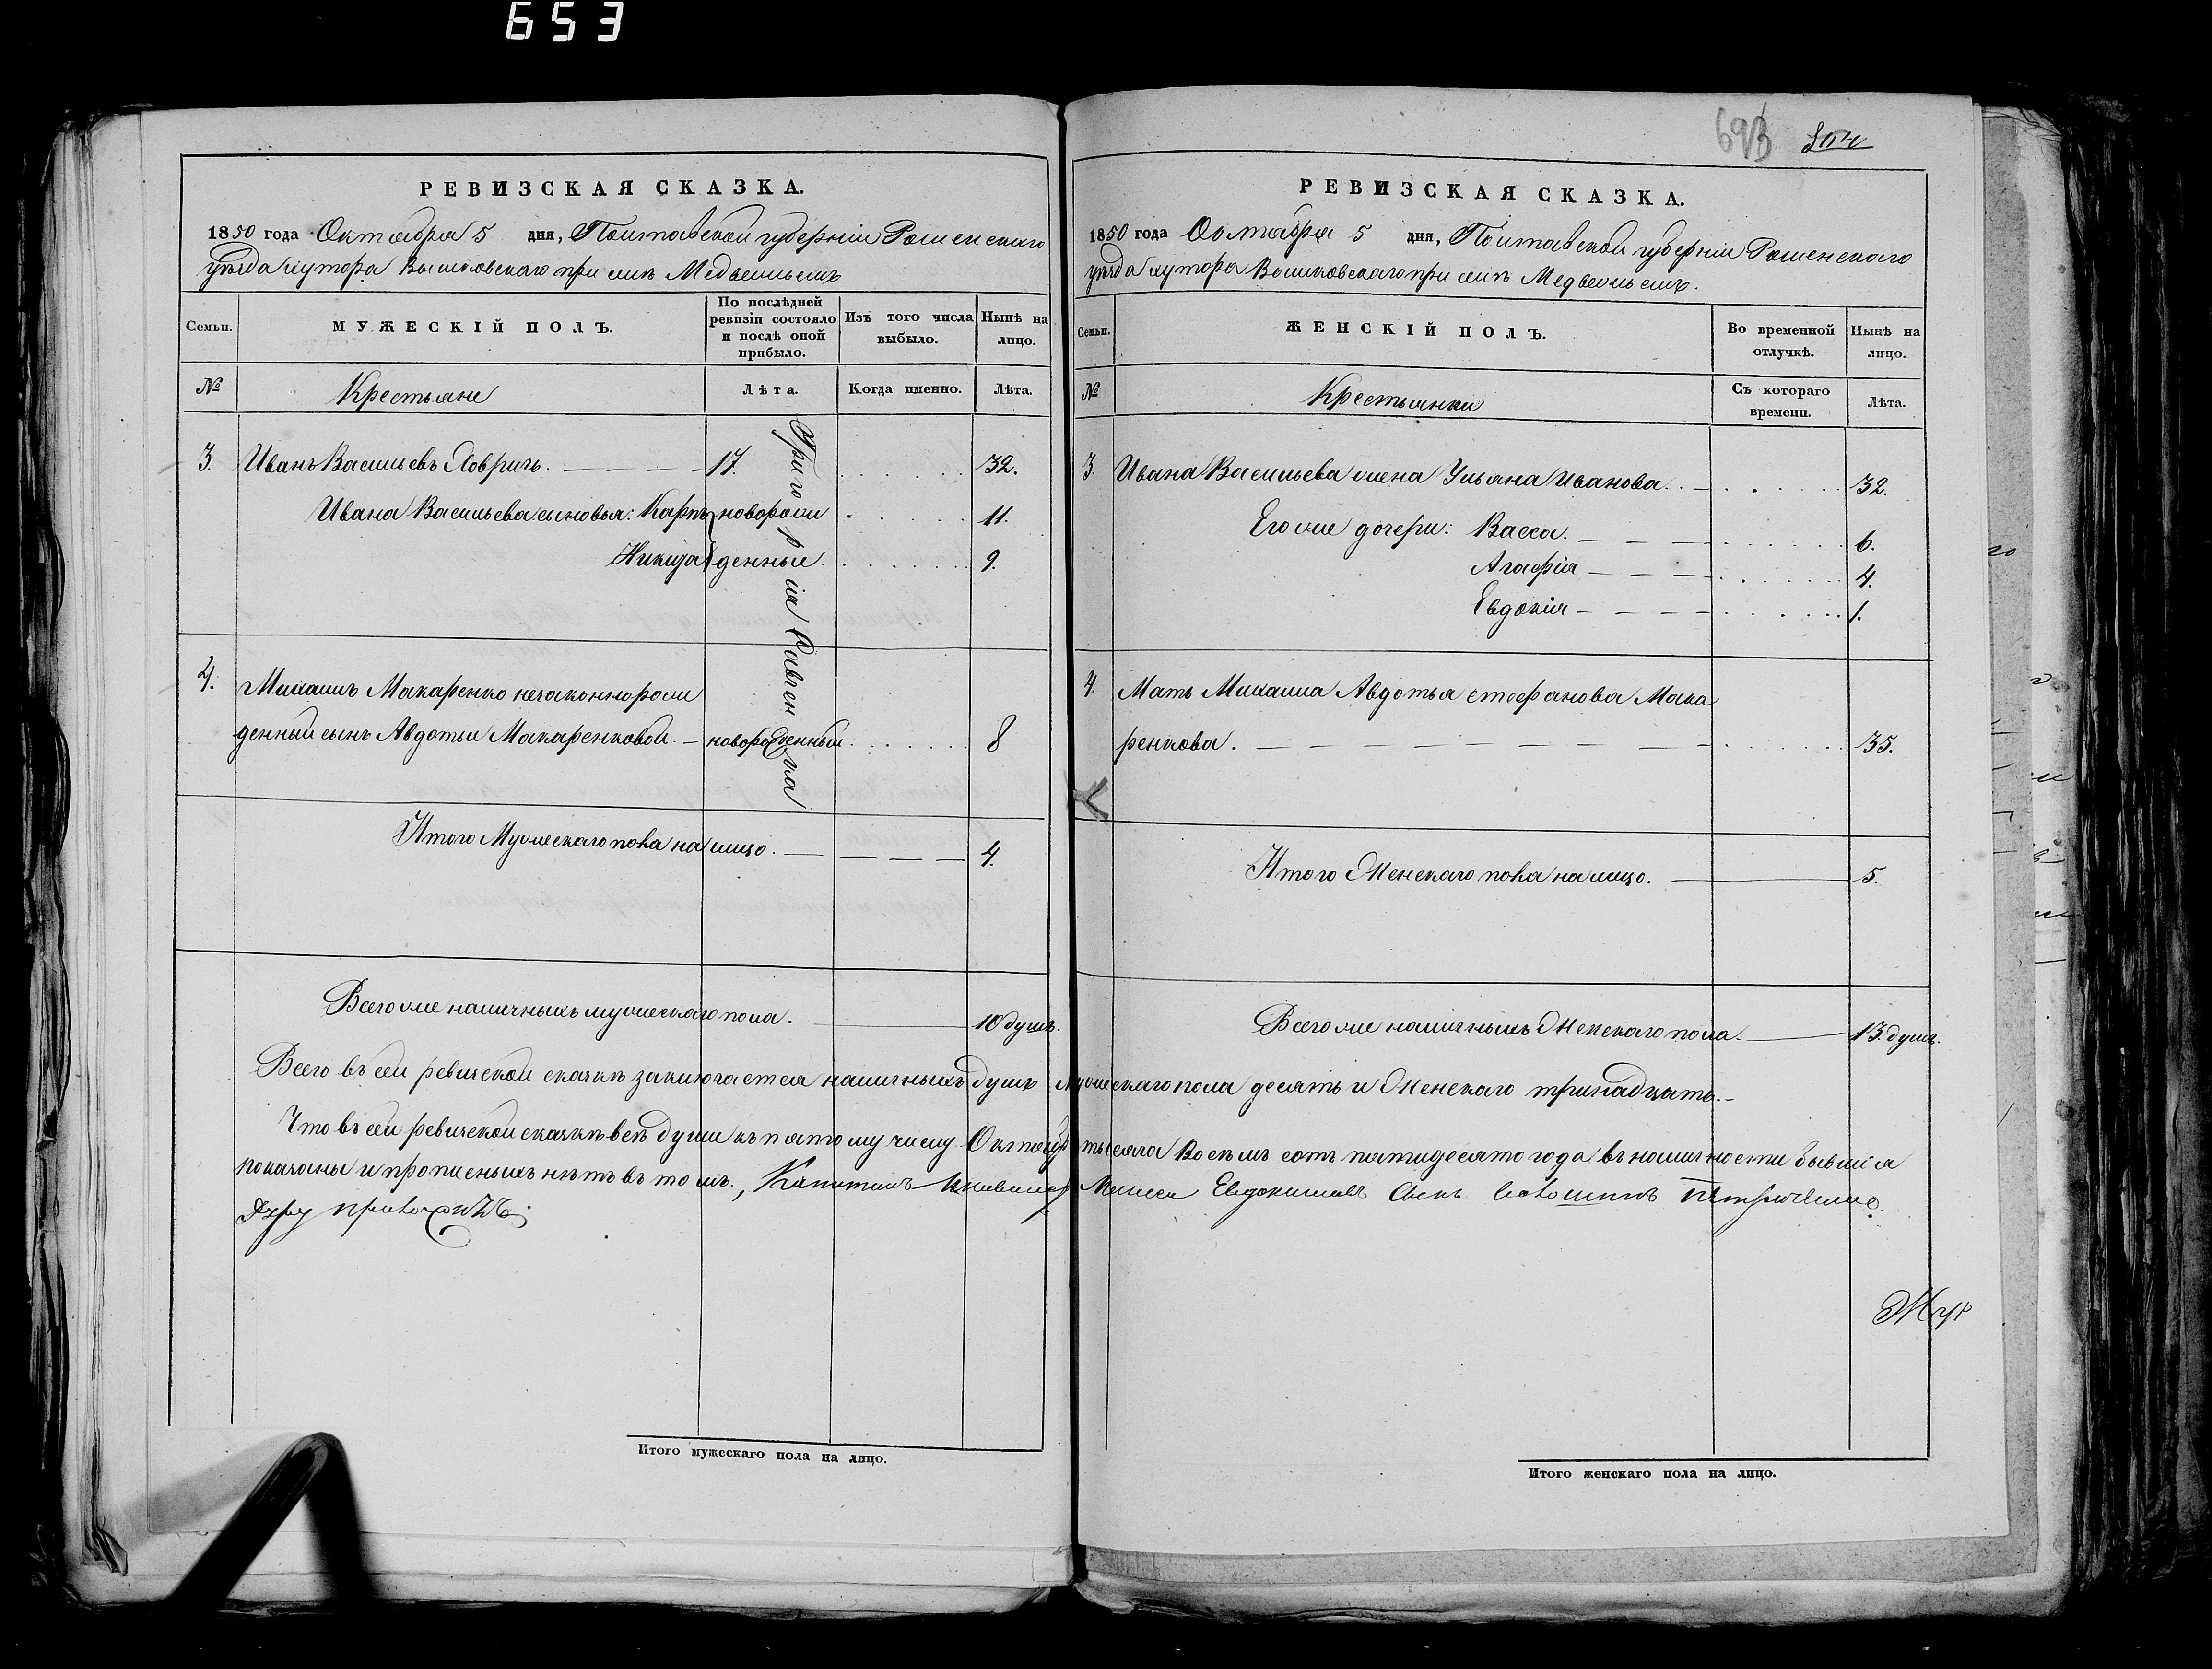 653
РЕВИЗСКАЯ СКАЗКА.
1850 года Октября 5 дня, Полтавской губерніи Роменскаго
уѣзда хутора
Семьи.
МУЖЕСКІЙ ПОЛЪ.
По послѣдней ревизіи состояло и послѣ оной прибыло.
Изъ того числа выбыло.
Нынѣ на лицо.
№
Крестьяне
Лѣта.
Когда именно.
Лѣта.
3. Иванъ Васильевъ 17. 32.
Ивана Васильева сыновья: Карпъ новорож 11.
Никита денные. 9.
4. Михаилъ Макаренко незаконнорож
денный сынъ Авдотьи Макаренковой. новорожденный. 8
Итого Мужескаго пола на лицо. 4.
Всего же наличныхъ мужескаго пола. 10 душъ.
693
РЕВИЗСКАЯ СКАЗКА.
1850 года Октября 5 дня, Полтавской губерніи Роменскаго
уѣзда хутора
Семьи.
ЖЕНСКІЙ ПОЛЪ.
Во временной отлучкѣ.
Нынѣ на лицо.
№
Крестьянки
Съ котораго времени.
Лѣта.
3. Ивана Васильева жена Ульяна Иванова. 32.
Его же дочери: Васса. 6.
Агафія 4.
Евдокія 1.
4. Мать Михаила Авдотья Стефанова Мака
ренкова. 35.
Итого Женскаго пола на лицо. 5.
Всего же наличныхъ Женскаго пола. 13. душъ.
Всего въ сей ревизской сказкѣ заключается наличныхъ душъ мужескаго пола десять и Женскаго тринадцать.
Что въ сей ревизской сказкѣ всѣ души къ пятому числу тысяча восемь сотъ пятидесято года въ наличности бывшія
показаны и прописныхъ нѣтъ въ томъ,
Итого мужескаго пола на лицо.
Итого женскаго пола на лицо.